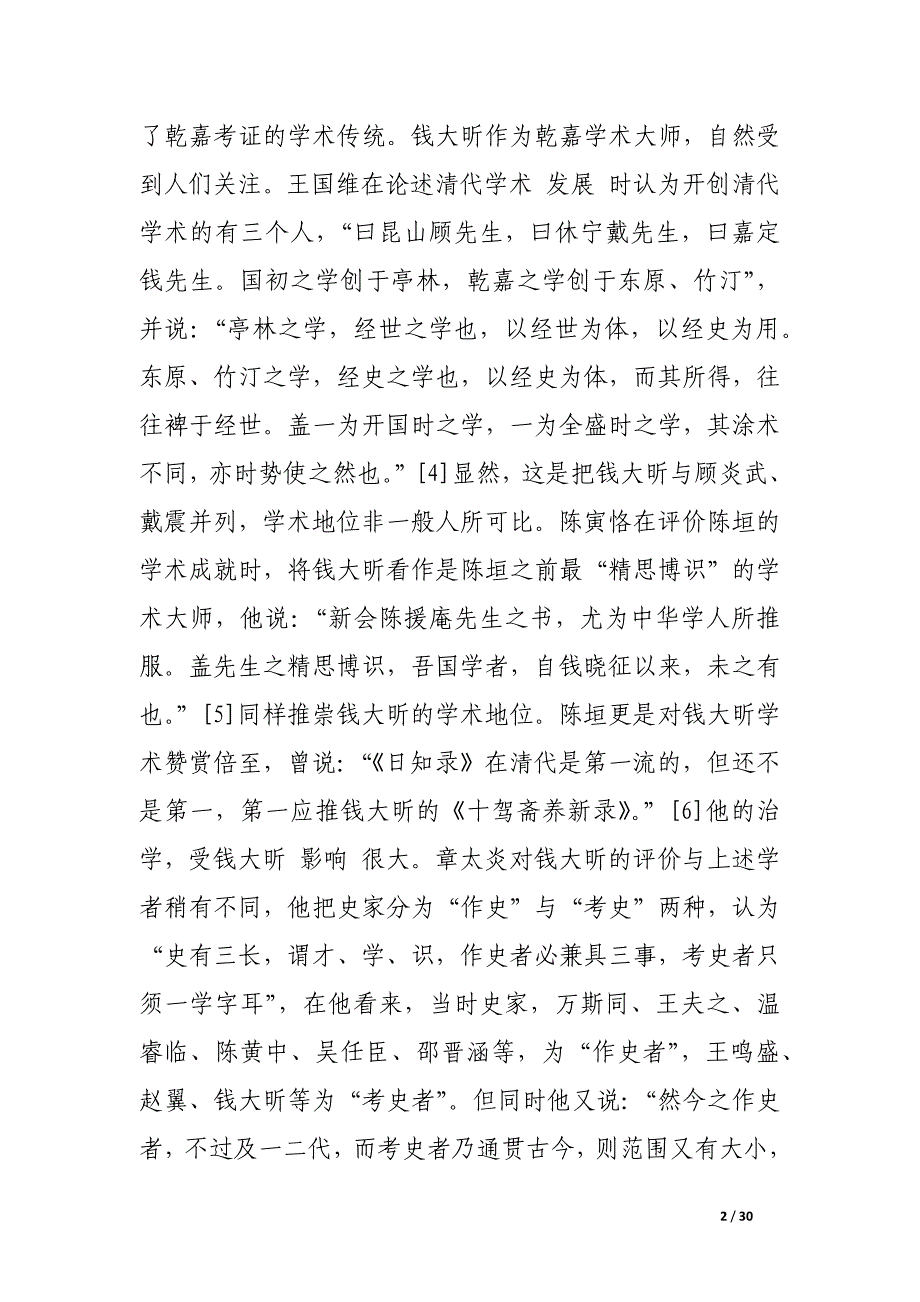 了乾嘉考证的学术传统。钱大昕作为乾嘉学术大师，自然受
到人们关注。王国维在论述清代学术 发展 时认为开创清代
学术的有三个人，“曰昆山顾先生，曰休宁戴先生，曰嘉定
钱先生。国初之学创于亭林，乾嘉之学创于东原、竹汀”，
并说：“亭林之学，经世之学也，以经世为体，以经史为用。
东原、竹汀之学，经史之学也，以经史为体，而其所得，往
往裨于经世。盖一为开国时之学，一为全盛时之学，其涂术
不同，亦时势使之然也。”[4]显然，这是把钱大昕与顾炎武、
戴震并列，学术地位非一般人所可比。陈寅恪在评价陈垣的
学术成就时，将钱大昕看作是陈垣之前最“精思博识”的学
术大师，他说：“新会陈援庵先生之书，尤为中华学人所推
服。盖先生之精思博识，吾国学者，自钱晓征以来，未之有
也。”[5]同样推崇钱大昕的学术地位。陈垣更是对钱大昕学
术赞赏倍至，曾说：“《日知录》在清代是第一流的，但还不
是第一，第一应推钱大昕的《十驾斋养新录》。”[6]他的治
学，受钱大昕 影响 很大。章太炎对钱大昕的评价与上述学
者稍有不同，他把史家分为“作史”与“考史”两种，认为
“史有三长，谓才、学、识，作史者必兼具三事，考史者只
须一学字耳”，在他看来，当时史家，万斯同、王夫之、温
睿临、陈黄中、吴任臣、邵晋涵等，为“作史者”，王鸣盛、
赵翼、钱大昕等为“考史者”。但同时他又说：“然今之作史
者，不过及一二代，而考史者乃通贯古今，则范围又有大小，
2 / 30